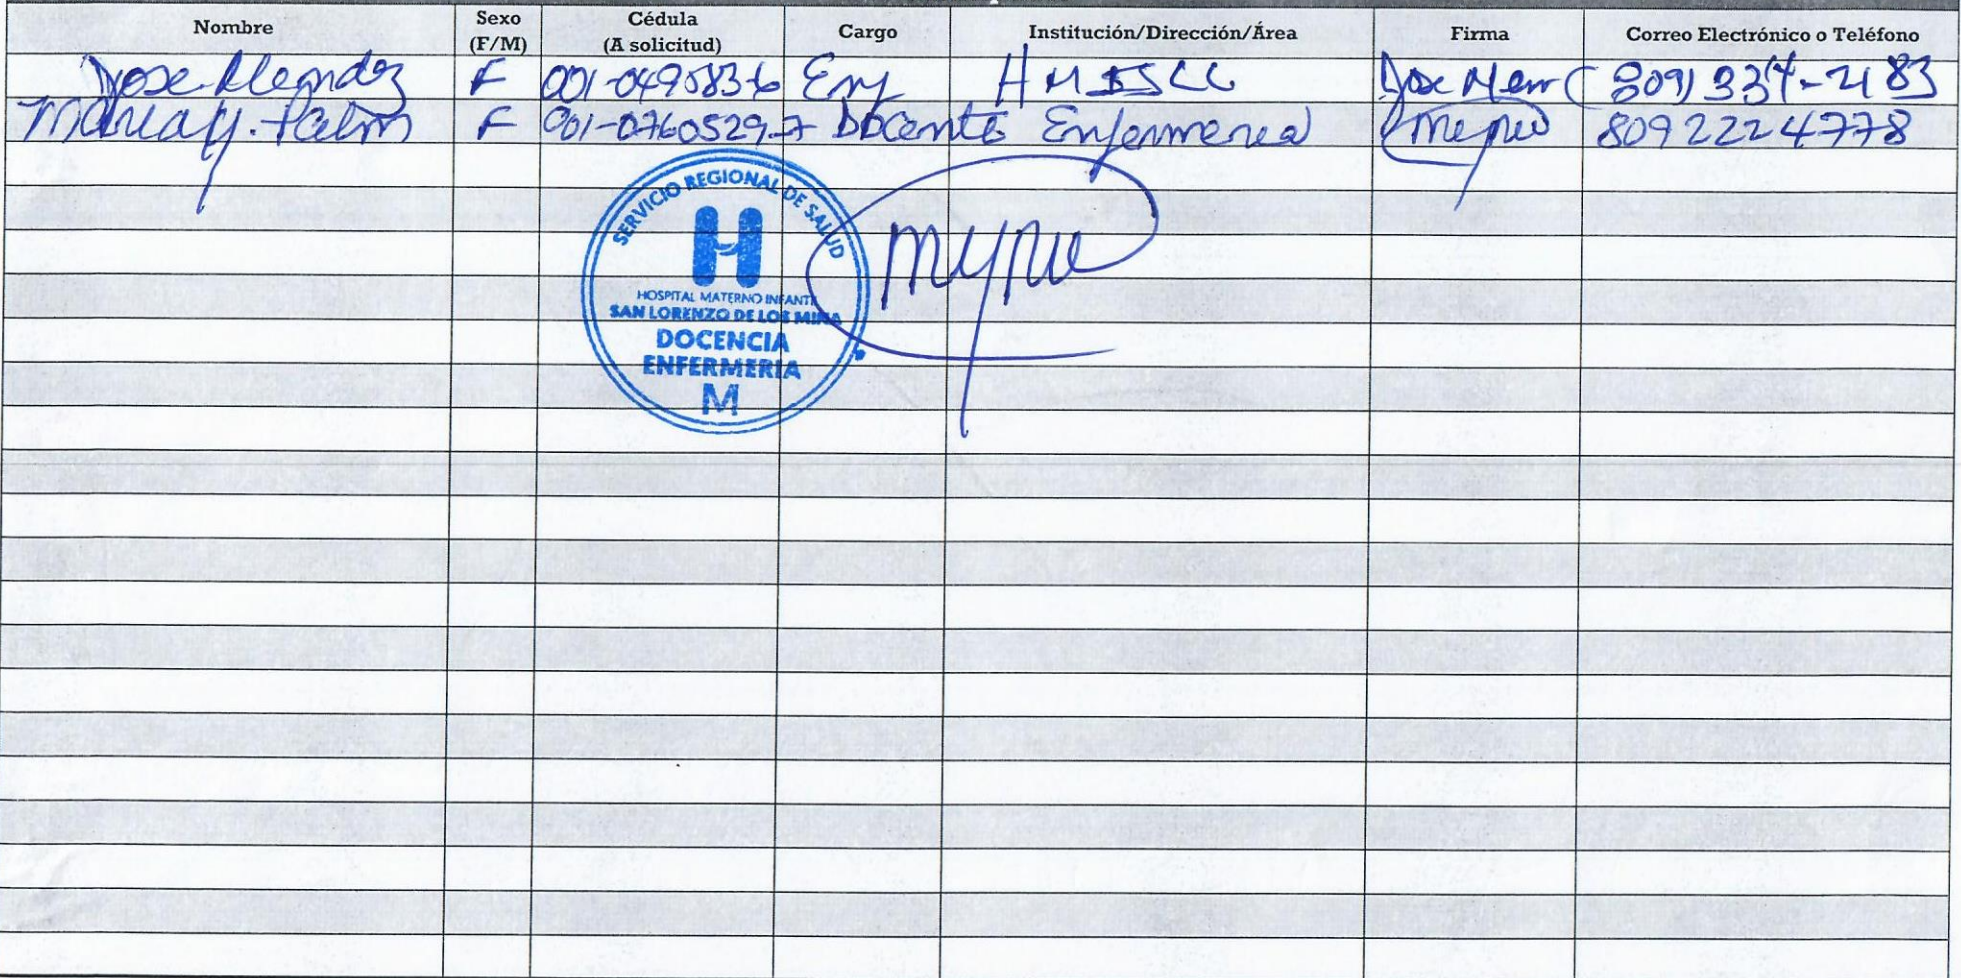 Nombre Sexo (F/M) Cédula (A solicitud) Cargo Institución/Dirección/Área Firma Correo Electrónico o Teléfono
Jose Mendez F 001-0495836 Enf HMISLL Jose Men (809) 334-2183
Maria y. F 001-0760529-7 Docente Enfermeria 8092224778
SERVICIO REGIONAL DE SALUD
H
HOSPITAL MATERNO INFANTIL
SAN LORENZO DE LOS MINA
DOCENCIA
ENFERMERIA
M